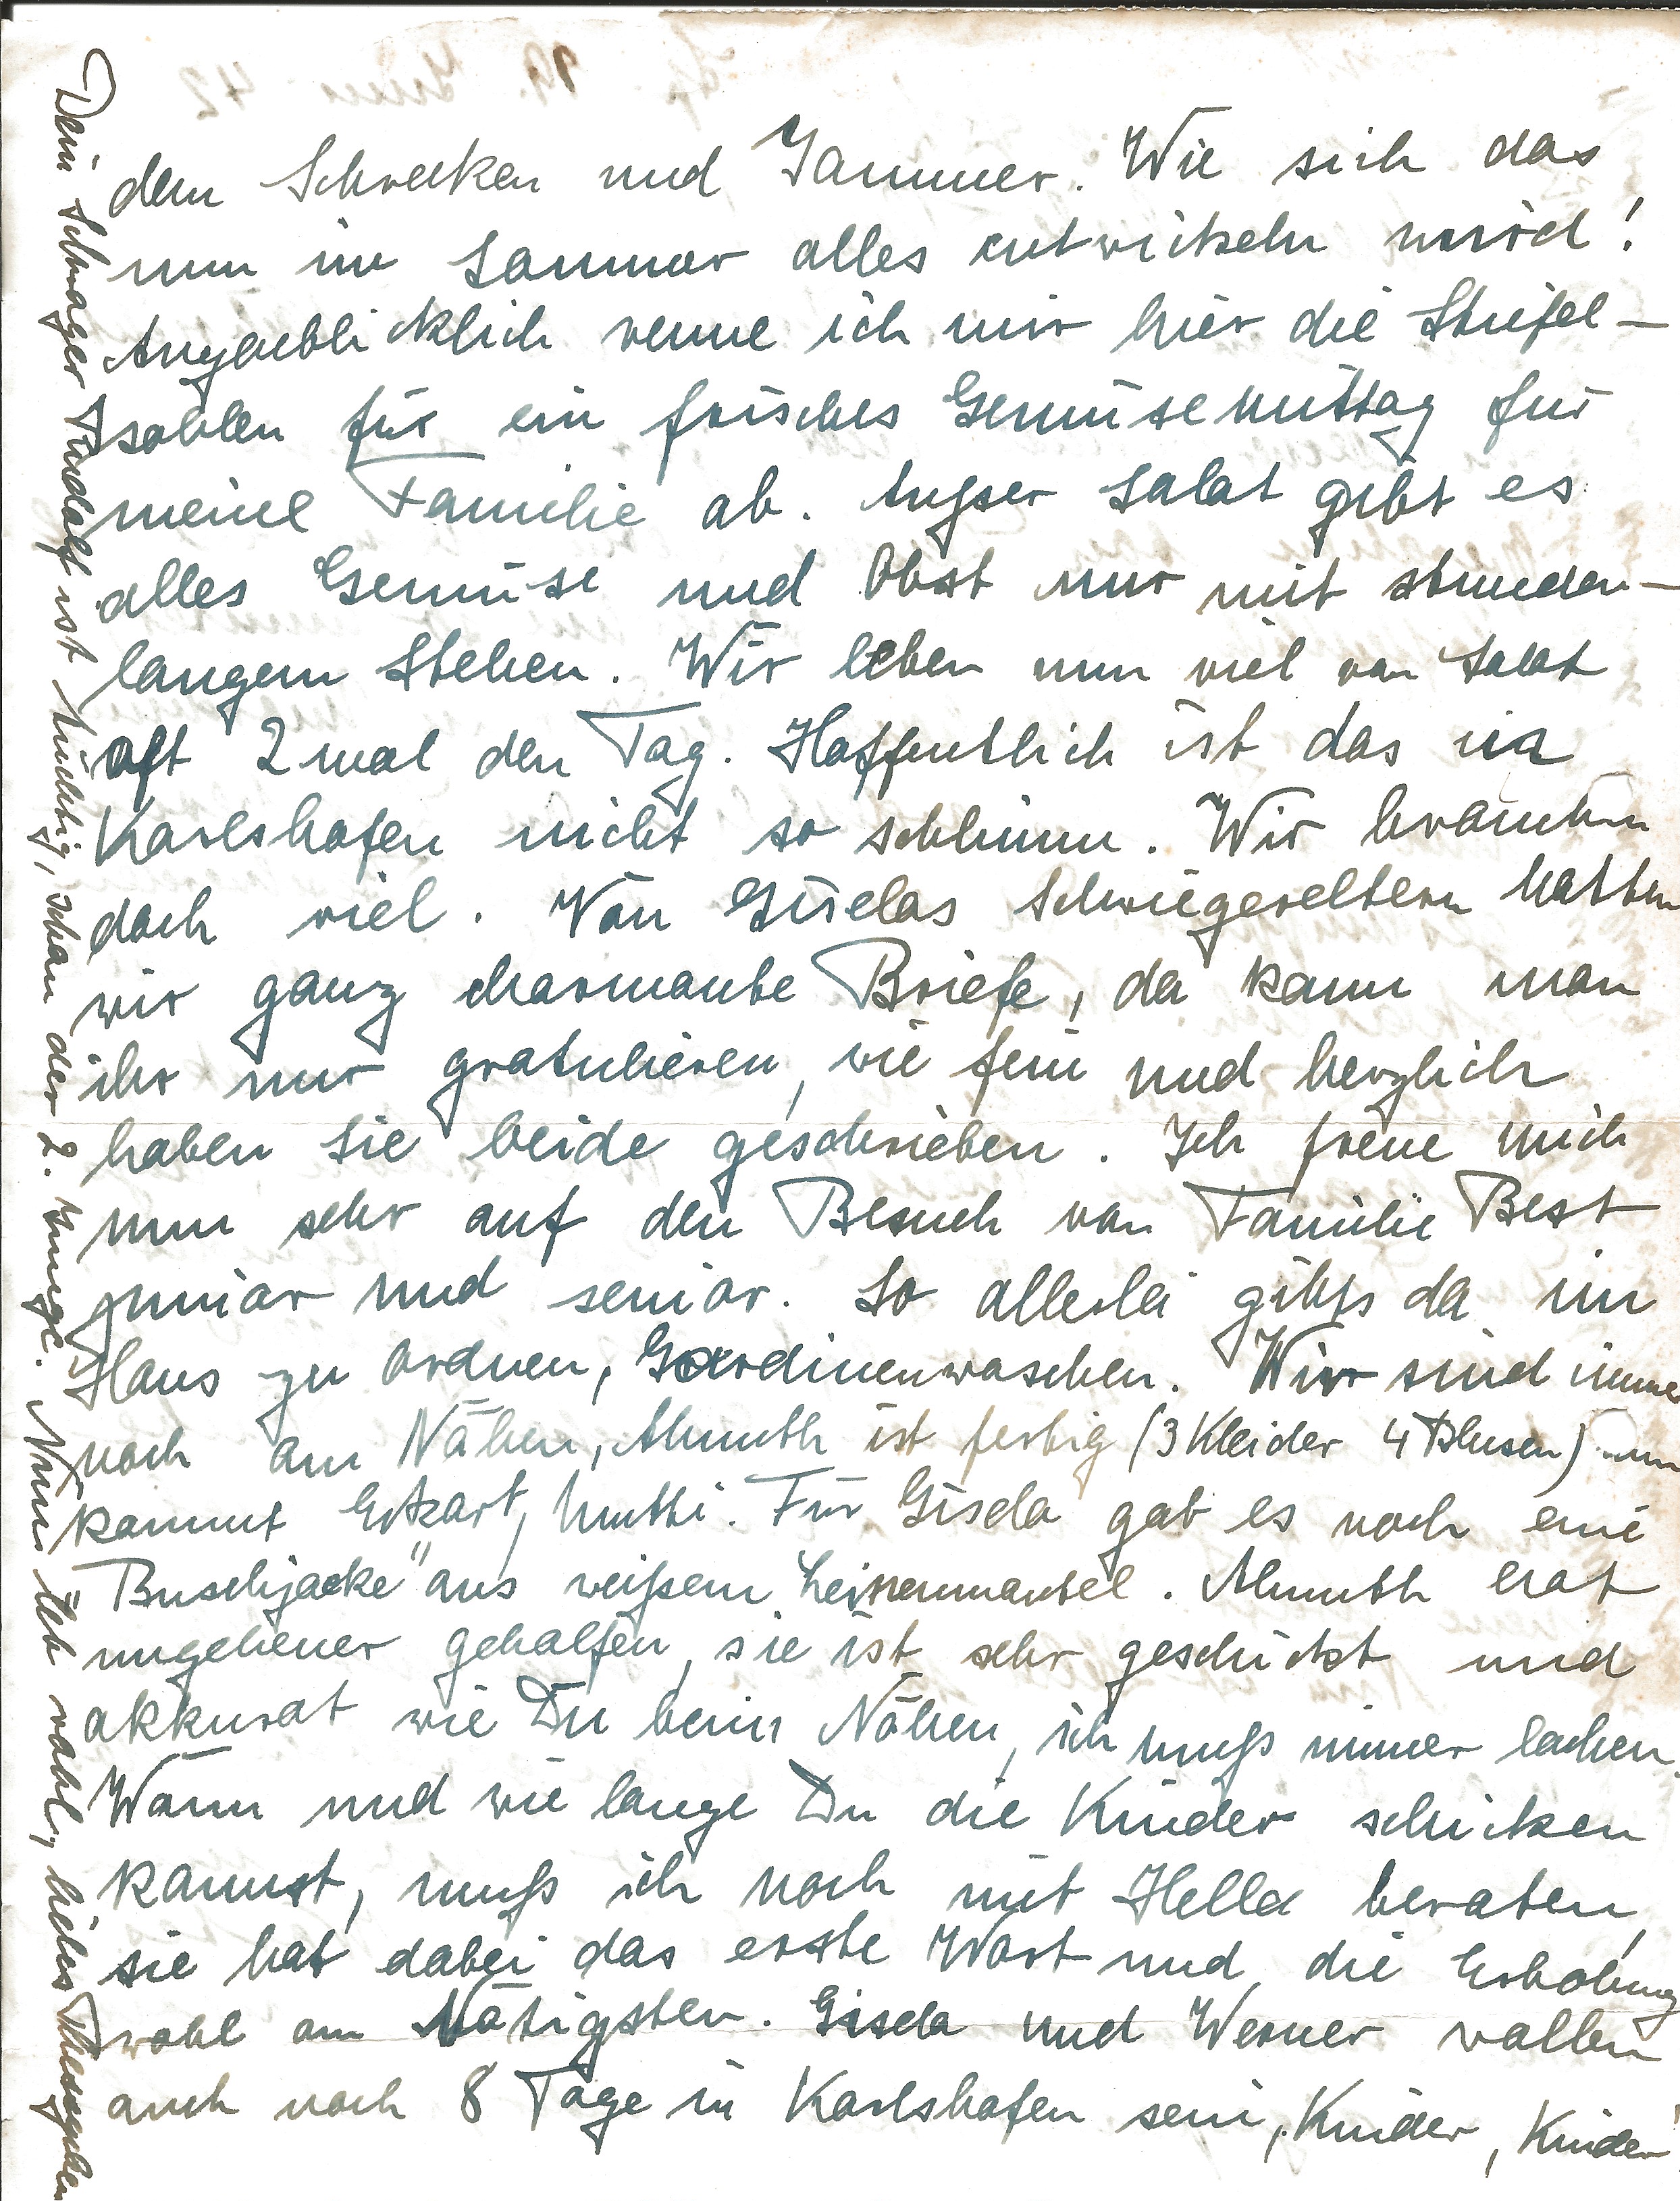 dem Schrecken und Jammer. Wie sich das
nun im Sommer alles entwickeln wird!
Augenblicklich renne ich mir hier die Stiefel-
sohlen für ein frisches Gemüsemittag für
meine Familie ab. Außer Salat gibt es
alles Gemüse und Obst nur mit stunden-
langem Stehen. Wir leben nun viel von Salat
oft 2 mal den Tag. Hoffentlich ist das in
Karlshafen nicht so schlimm. Wir brauchen
doch viel. Von Giselas Schwiegereltern hatten
wir ganz charmante Briefe, da kann man
ihr nur gratulieren, wie fein und herzlich
haben sie beide geschrieben. Ich freue mich
nun sehr auf den Besuch von Familie Best
junior und senior. So allerlei gibts da im
Haus zu ordnen, Gardinenwaschen. Wir sind immer
noch am Nähen, Almuth ist fertig (3 Kleider 4 Blusen) nun
kommt Eckart, Mutti. Für Gisela gab es noch eine
"Buschjacke" aus weißem Leinenmantel. Almuth hat
ungeheuer geholfen, sie ist sehr geschickt und
akkurat wie Du beim Nähen, ich muß immer lachen.
Wann und wie lange Du die Kinder schicken
kannst, muß ich noch mit Hella beraten,
sie hat dabei das erste Wort und die Erholung
wohl am Nötigsten. Gisela und Werner wollen
auch noch 8 Tage in Karlshafen sein, Kinder, Kinder!
Dein Schwager Rudolf ist tüchtig, schon der 2. Junge. Nun leb wohl, liebes
42